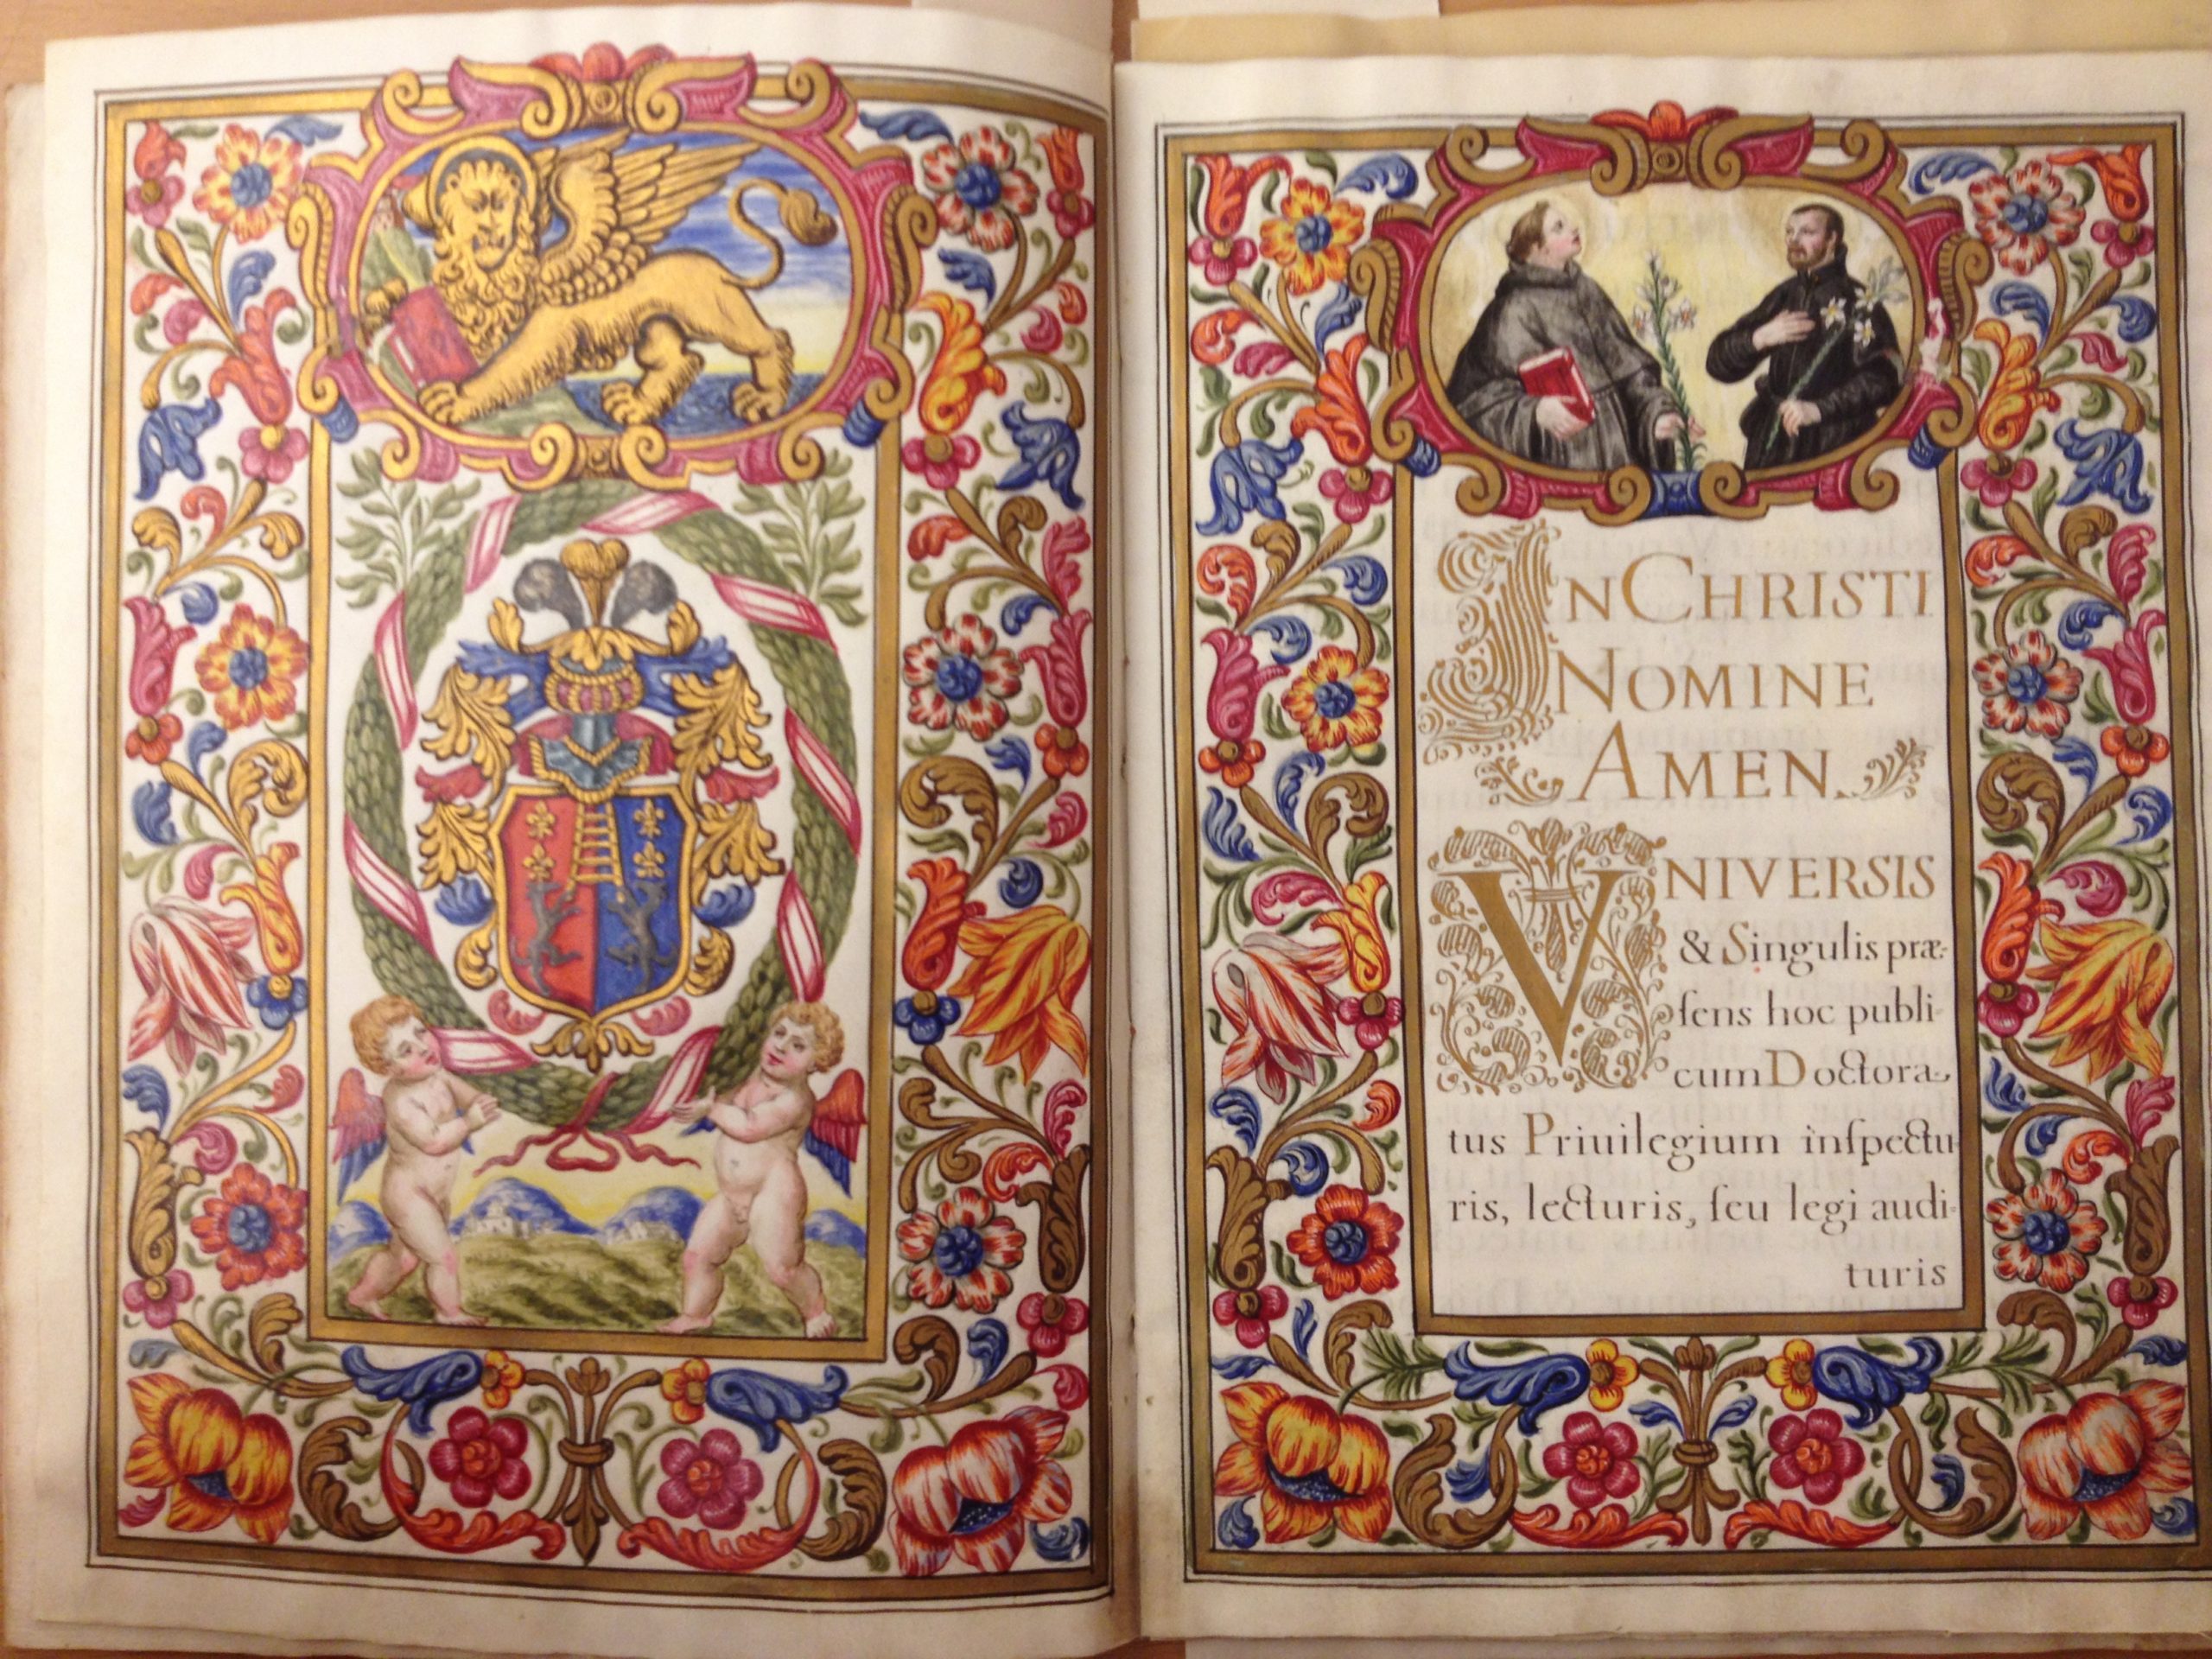 IN CHRISTI
NOMINE
AMEN.
VNIVERSIS
& Singulis præ-
ſens hoc publi-
cum Doctora-
tus Priuilegium inſpectu-
ris, lecturis, ſeu legi audi-
turis